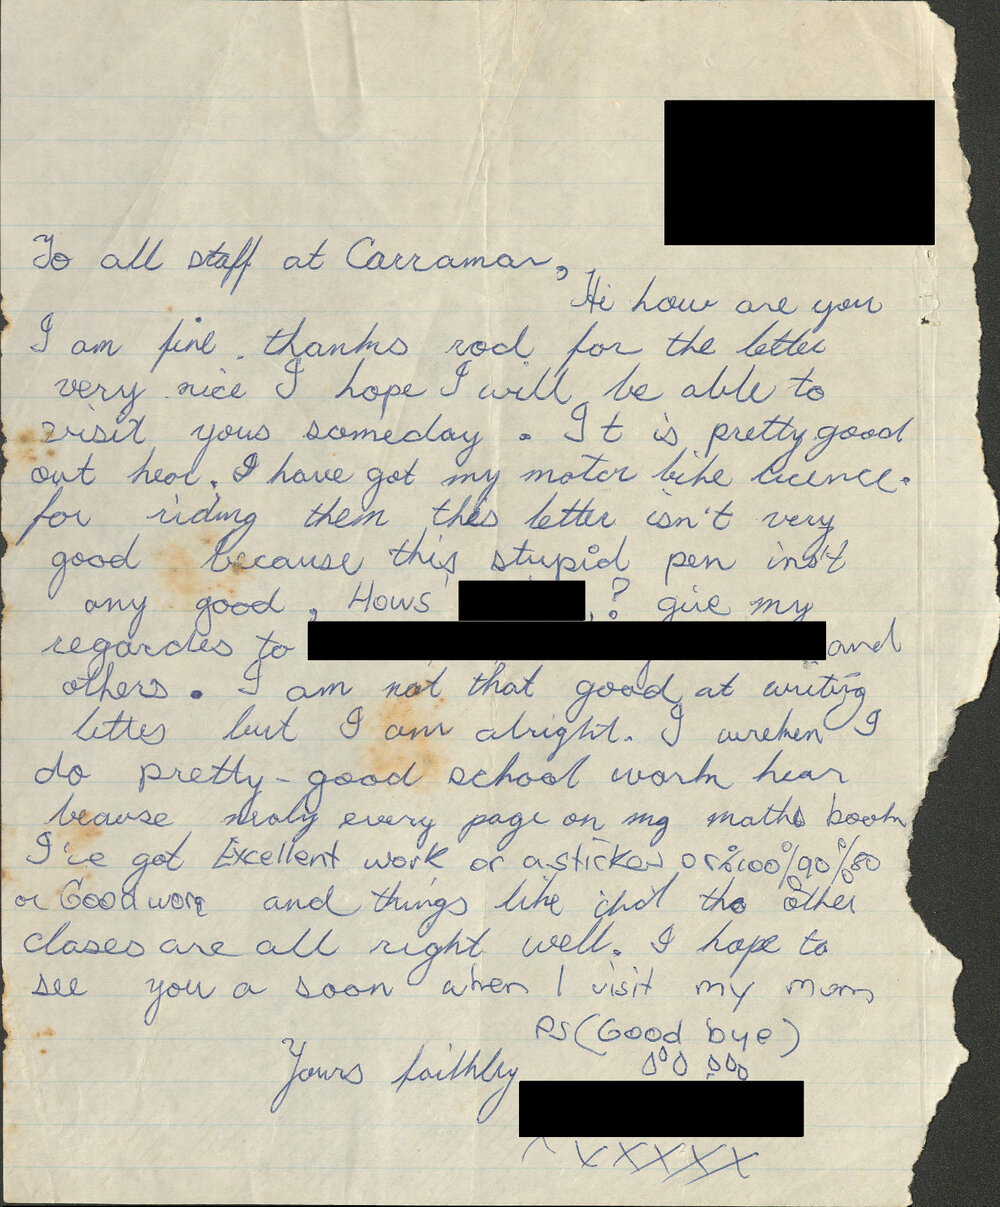 To all staff at Carramar,
Hi how are you
I am fine. thanks rod for the letter
very nice I hope I will be able to
visit yous someday. It is pretty good
out hear. I have got my motor bike licence.
for riding them this letter isn't very
good because this stupid pen ins't
any good, Hows ? give my
regardes to and
others. I am not that good at writing
lettes but I am alright. I wreken I
do pretty-good school work hear
beause nealy every page on my maths book
I've got Excellent work or a sticker or 100% 90% 80
or Good work and things like the other
clases are all right well. I hope to
see you a soon when I visit my mum
PS (Good bye)
Yours faithley
XXXXX